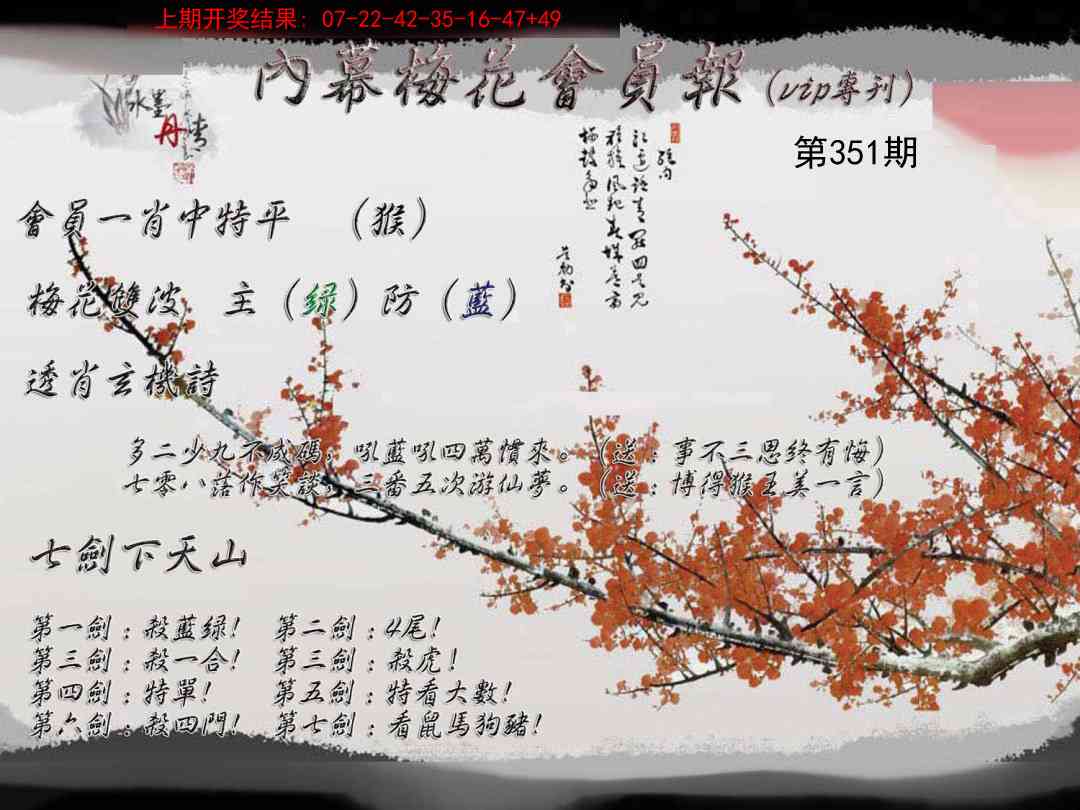 上期开奖结果: 07-22-42-35-16-47+49
內幕梅花會員報(vip專刊)
水墨
丹青
第351期
會員一肖中特平 (猴)
梅花雙波 主(绿)防(藍)
透肖玄機詩
多二少九不成碼，吼藍吼四萬慣來。(送:事不三思终有悔)
七零八落作笑談，三番五次游仙夢。(送:博得猴王美一言)
七劍下天山
第一劍:殺藍绿! 第二劍:4尾!
第三劍:殺一合! 第三劍:殺虎!
第四劍:特單! 第五劍:特看大數!
第六劍:殺四門! 第七劍:看鼠馬狗豬!